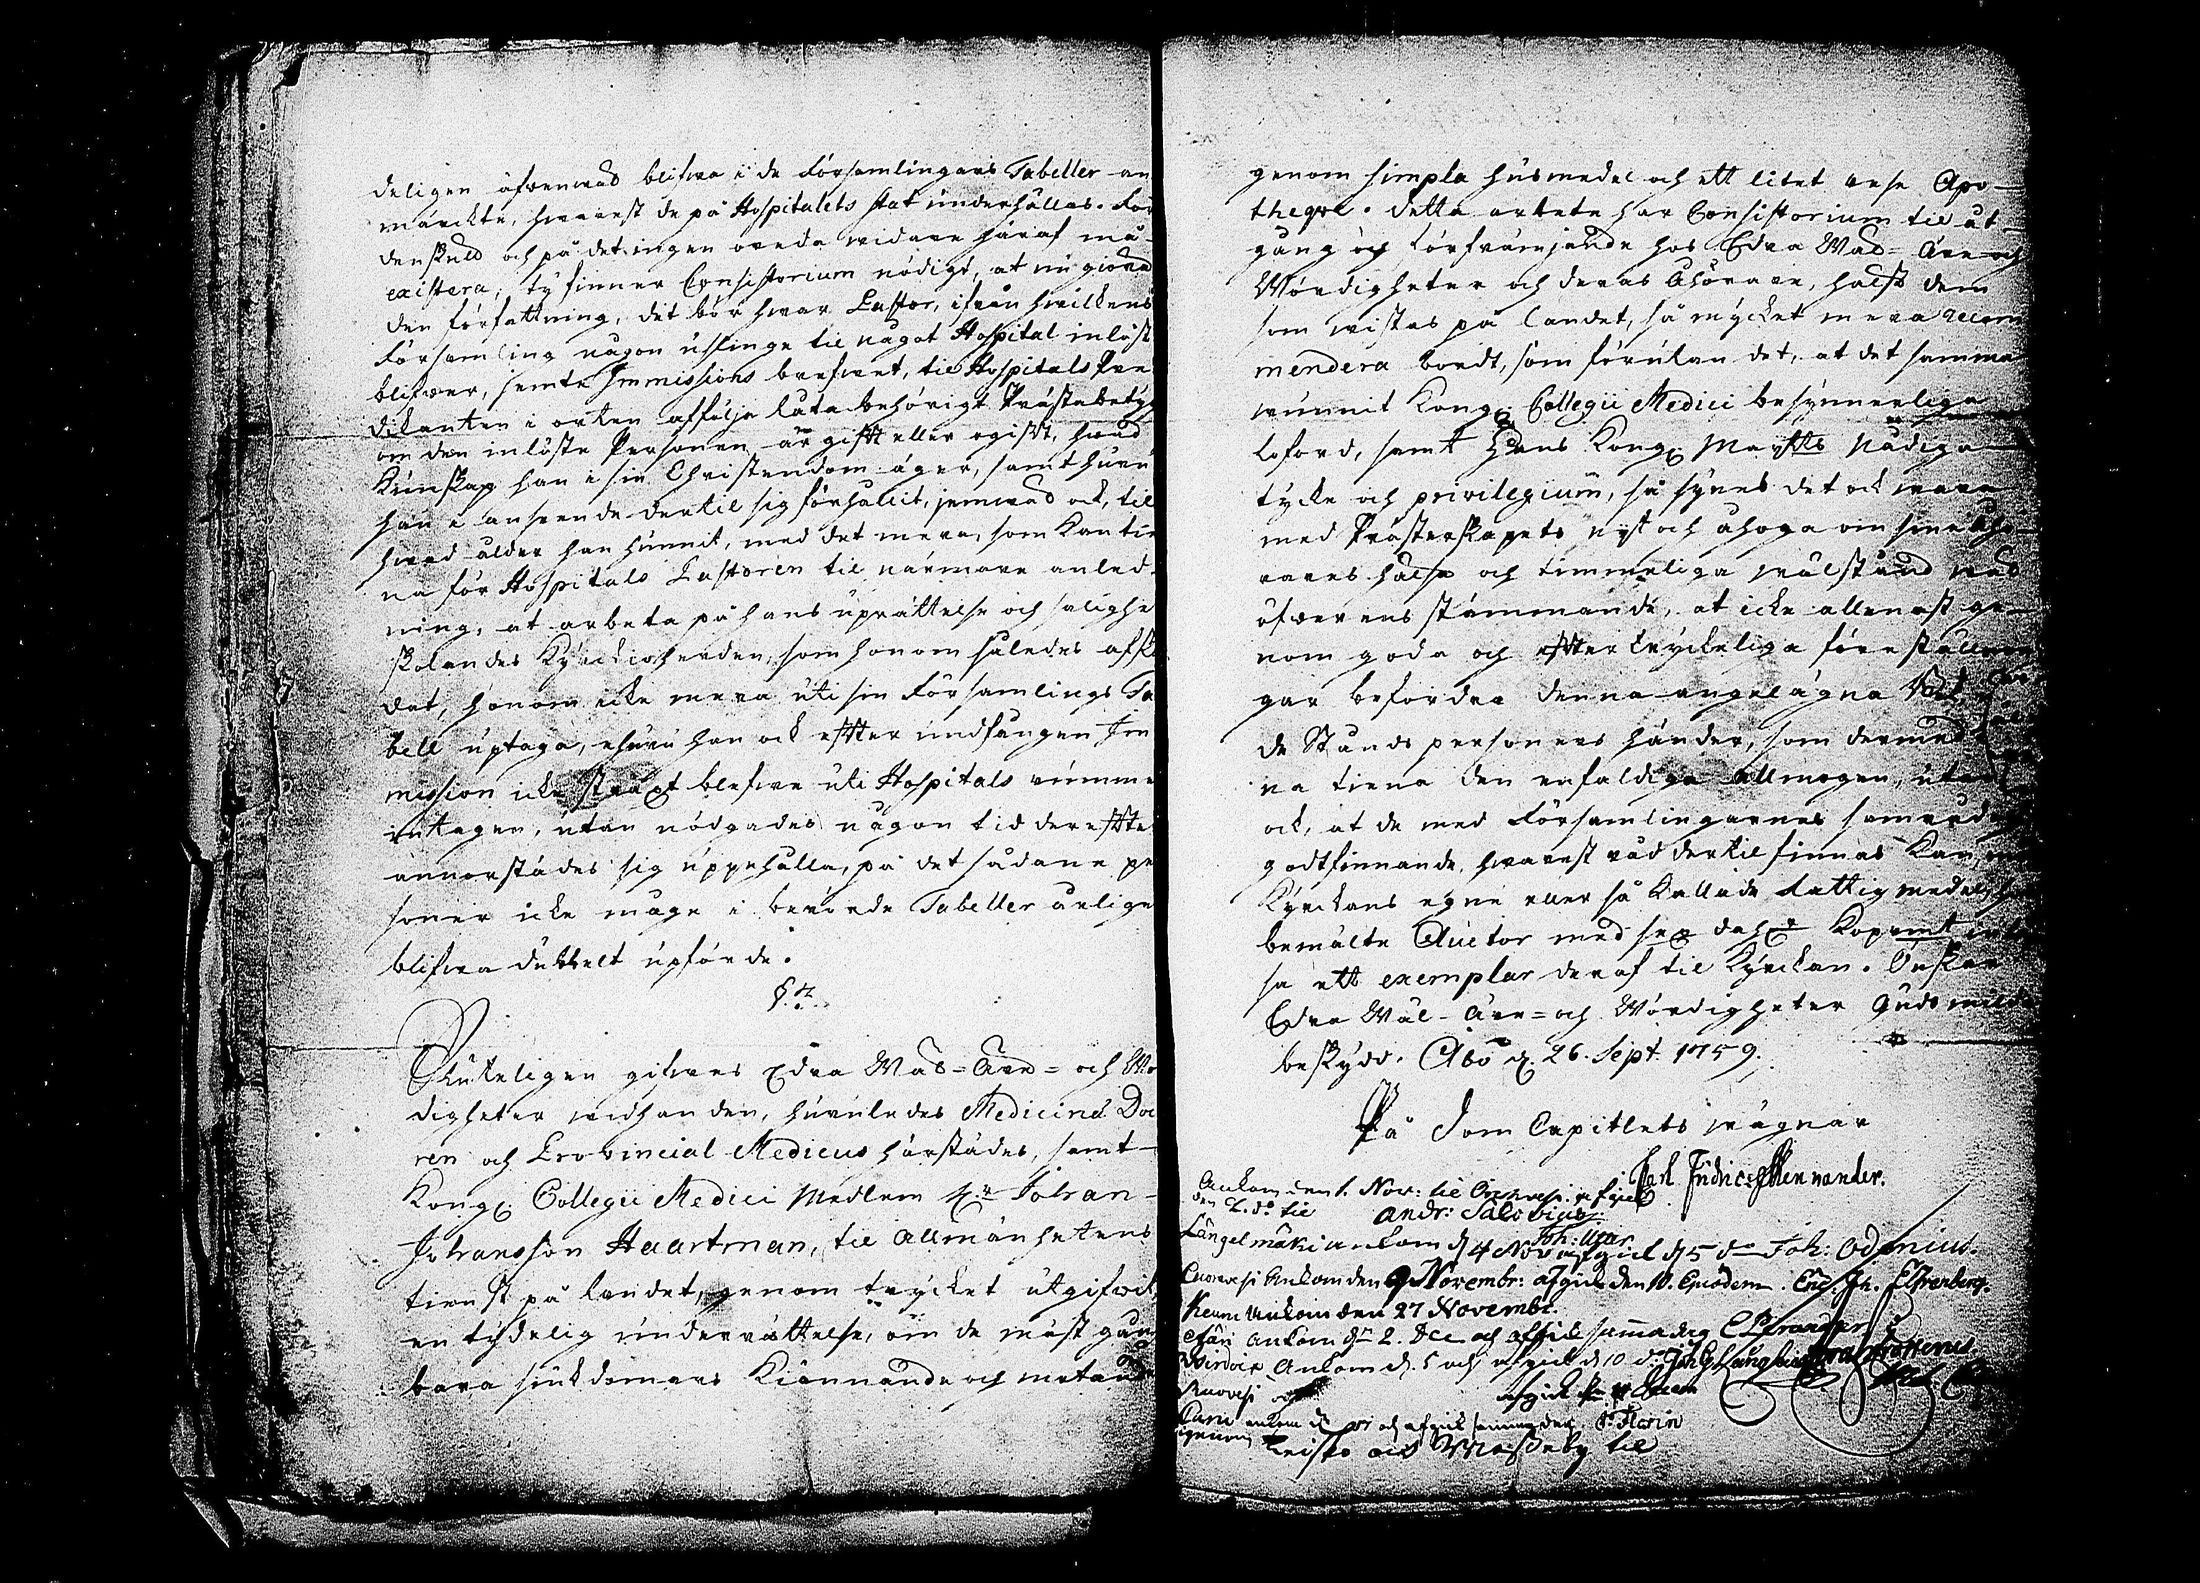 deligen äfwenwäl blifwa i de Församlingars Tabeller an
märckte, hwarest de på Hospitalets stat underhållas. För
denskuld och på det ingen oreda widare häraf må
existera, ty finner Consistorium nödigt, at nu giöra
den författning, det bör hwar Pastor, ifrån hwilkens
Församling någon usling til något Hospital inlöst
blifwer, jemte Immissions brefwet, til Hospitals Pre
dikanten i orten afföllja låta behörigt Prästabetyg
om den inlöste Personen är gift eller ogift, hwad
Kunskap han i sin Christendom äger, samt huru
han i anseende dertil sig förhållit, jemwäl ock, til
hwad ålder han hunnit, med det mera, som kan tie
na för Hospitals Pastoren til närmare anled-
ning, at arbeta på hans uprättelse och salighet
skolandes Kyrckioherden, som honom således afsk
dat, honom icke mera uti sin Församlings Ta
bell uptaga, ehuru han ock efter undfången Im
mission icke straxt blefwe uti Hospitals rumme
intagen, utan nödgades någon tid derefter
annorstädes sig uppehålla, på det sådane per
soner icke måge i berörde Tabeller årligen
blifwa dubbelt upförde.
§. 7.
Sluteligen gifwes Edra Wäl-Äre- och Wör
digheter wid handen, huruledes Medicinæ Doc
ren och Provincial Medicus härstädes, samt
Kongl. Collegii Medici Medlem Hr. Johan
Johansson Haartman, til Allmänhetens
tienst på landet, genom trycket utgifwit
en tydelig underrättelse, om de mäst gång
bara siukdomars Kiännande och motande
genom simpla husmedel och ett litet rese Apo-
theque. Detta arbete har Consistorium til ut-
gång och förfrämjande hos Edra Wäl-Äre och
Wördigheter och deras Åhörare, hälst dem
som wistas på landet, så mycket mera recom
mendera bordt, som förutan det, at det samma
wunnit Kongl. Collegii Medici besynnerliga
loford, samt Hans Kongl. Maj:tts Nådiga
tycke och privilegium, så synes det ock wara
med Prästerskapets nit och åhoga om sine Åhö-
rares hälsa och timmeliga wälstånd wäl
öfwerensstämmande, at icke allenast ge-
nom goda och eftertryckeliga föreställnin
gar befordra denna angelägna Bok
de Stånds personers händer, som dermed
na tiena den enfaldiga allmogen, utan
ock, at de med Församlingarnes samråd
godtfinnande, hwarest råd dertil finnas kan,
Kyrckans egne eller så kallade fattigmedel,
bemälte Auctor med sex dal. Kopparmt
sa ett exemplar deraf til Kyrckan. Önskar
Edra Wäl-Äre- och Wördigheter Guds milda
beskydd. Åbo d. 26. Sept. 1759.
På Dom Capitlets wägnar
Carl Fredric Mennander.
Ankom den 1. Nov: til Orihvesi afgick
den 2. do til Andr: Salovius
Joh: Ugar
Längelmäki ankom d 4 Nov: afgick d 5 do Joh: Odenius.
Kuorevesi Ankom den 9 Novembr: afgick den 10. Ejusdem. Eric Jh. Ehrenberg.
Keuru Ankom den 27 Novembr.
Etsäri ankom d 2. Dec och afgick samma dag
Wirdois Ankom d. 5 och afgick d 10 do Joh G Långhielm
Ruovesi
Curu ankom d och afgick samma dag